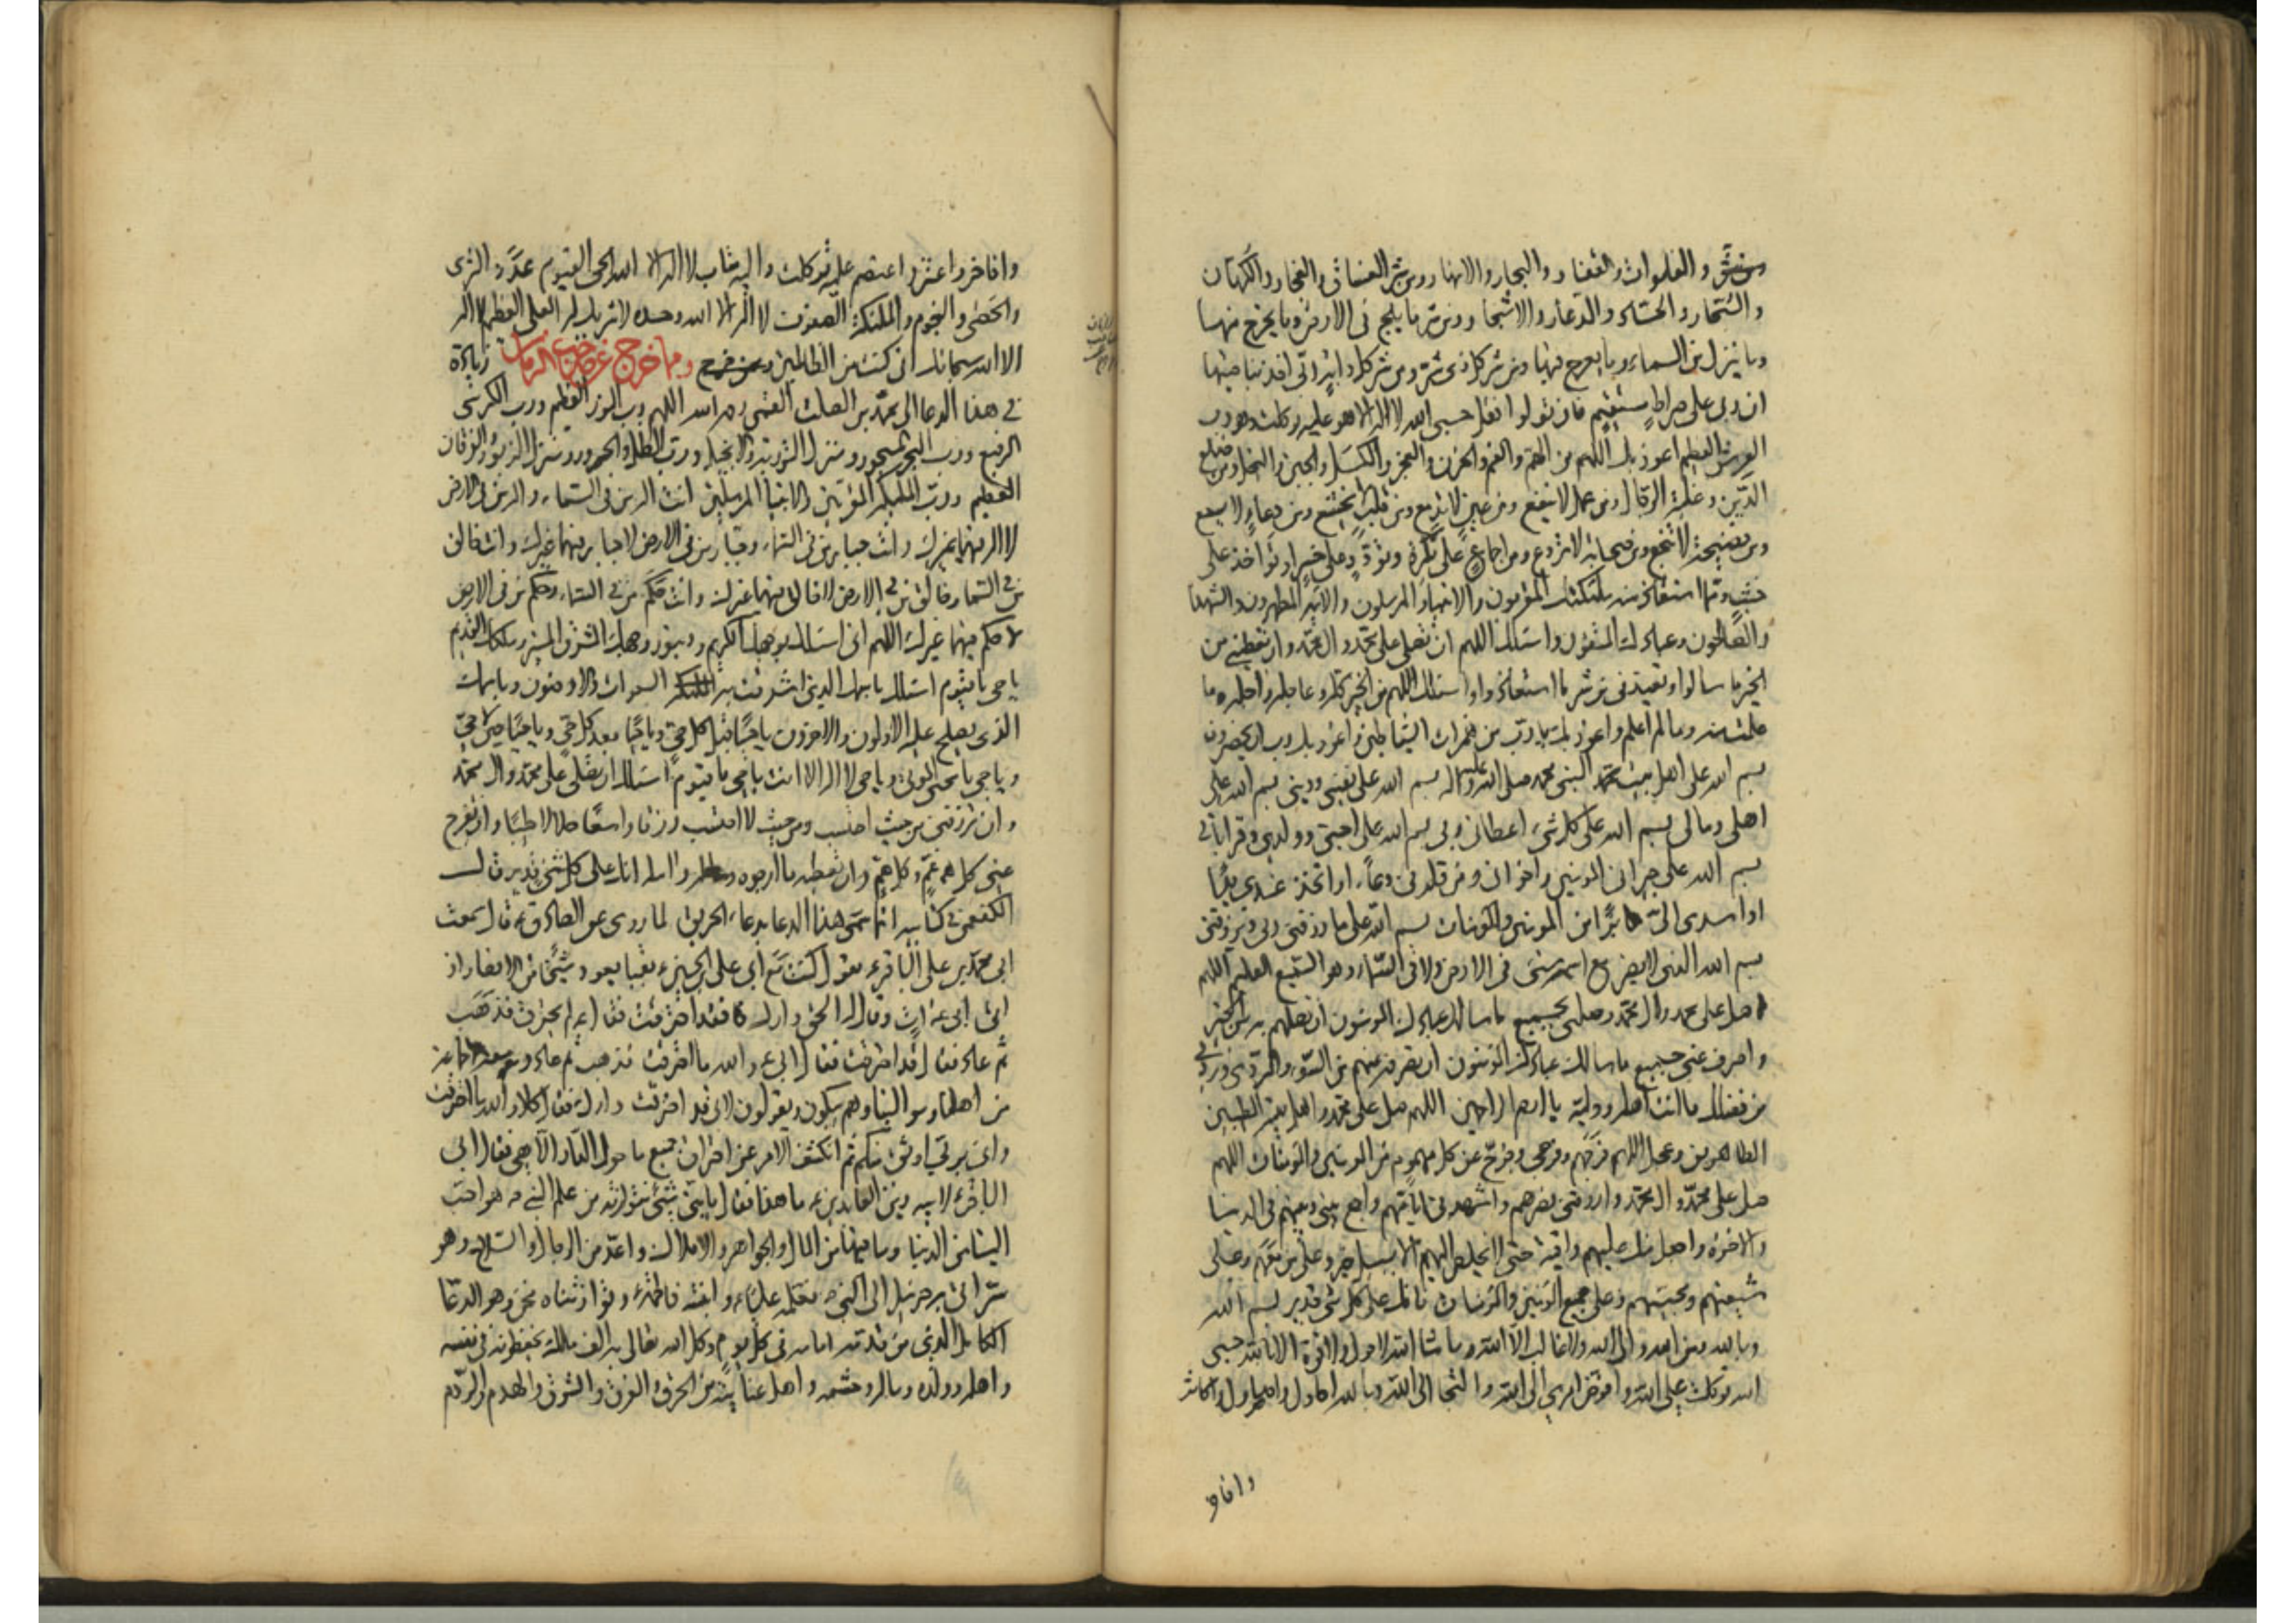 والفلوات والقفار والبحار والانهار ومن شر الفساق والفجار والكهان
والسحار والحساد والذعار والاشرار ومن شر ما يلج فى الارض وما يخرج منها
وما ينزل من السماء وما يعرج فيها ومن شر كل ذى شر ومن شر كل دابة ربى اخذ بناصيتها
ان ربى على صراط مستقيم فان تولوا فقل حسبى الله لا اله الا هو عليه توكلت وهو رب
العرش العظيم اعوذ بك اللهم من الهم والغم والحزن والعجز والكسل والجبن والبخل ومن ضلع
الدين وغلبة الرجال ومن عمل لا ينفع ومن عين لا تدمع ومن قلب لا يخشع ومن دعاء لا يسمع
ومن نصيحة لا تنجع ومن صحابة لا تردع ومن اجماع على نكرة وتودد على خسر او تؤاخذ على
خبث ومما استعاذ منه ملئكتك المقربون والانبياء المرسلون والائمة المطهرون والشهدا
والصالحون وعبادك المتقون واسئلك اللهم ان تصلى على محمد وال محمد وان تعطينى من
الخير ما سالوا وتعيذنى من شر ما استعاذوا واسئلك اللهم من الخير كله عاجله واجله ما
علمت منه وما لم اعلم واعوذ بك يا رب من همزات الشياطين واعوذ بك رب ان يحضرون
بسم الله على اهل بيت محمد النبى محمد صلى الله عليه واله بسم الله على نفسى ودينى بسم الله على
اهلى ومالى بسم الله على كل شىء اعطانى ربى بسم الله على احبتى وولدى وقراباتى
بسم الله على جيرانى المؤمنين واخوانى ومن قلدنى دعاء او اتخذ عندى يدا
او اسدى الى برا من المؤمنين والمؤمنات بسم الله على ما رزقنى ربى ويرزقنى
بسم الله الذى لا يضر مع اسمه شىء فى الارض ولا فى السماء وهو السميع العليم اللهم
صل على محمد وال محمد وصلنى بجميع ما سالك عبادك المؤمنون ان تصلهم به من الخير
واصرف عنى جميع ما سالك عبادك المؤمنون ان تصرفه عنهم من السوء والردى وزدنى
من فضلك ما انت اهله ووليه يا ارحم الراحمين اللهم صل على محمد واهل بيته الطيبين
الطاهرين وعجل اللهم فرجهم وفرجى وفرج عن كل مهموم من المؤمنين والمؤمنات اللهم
صل على محمد وال محمد وارزقنى نصرهم واشهدنى ايامهم واجمع بينى وبينهم فى الدنيا
والاخرة واجعل منك عليهم واقية حتى لا يخلص اليهم الا بسبيل خير وعلى من معهم وعلى
شيعتهم ومحبيهم وعلى جميع المؤمنين والمؤمنات فانك على كل شىء قدير بسم الله
وبالله ومن الله والى الله ولا غالب الا الله وما شاء الله لا حول ولا قوة الا بالله حسبى
الله توكلت على الله وافوض امرى الى الله والتجا الى الله وبالله احاول واصاول واكاثر
وافاخر
وافاخر واعتز واعتصم عليه توكلت واليه متاب لا اله الا الله الحى القيوم عدد الثرى
والحصى والنجوم والملئكة الصفوف لا اله الا الله وحده لا شريك له العلى العظيم لا اله
الا الله سبحانك انى كنت من الظالمين ومما خرج عن صاحب الزمان زيادة
فى هذا الدعا الى محمد بن الصلت القمى ره اللهم رب النور العظيم ورب الكرسى
الرفيع ورب البحر المسجور ومنزل التورية والانجيل ورب الظل والحرور ومنزل الزبور والفرقان
العظيم ورب الملئكة المقربين والانبياء المرسلين انت اله من فى السماء واله من فى الارض
لا اله فيهما غيرك وانت جبار من فى السماء وجبار من فى الارض لا جبار فيهما غيرك وانت خالق
من فى السماء وخالق من فى الارض لا خالق فيهما غيرك وانت حكم من فى السماء وحكم من فى الارض
لا حكم فيهما غيرك اللهم انى اسئلك بوجهك الكريم وبنور وجهك المشرق المنير وملكك القديم
يا حى يا قيوم اسئلك باسمك الذى اشرقت به السموات والارضون وباسمك
الذى يصلح عليه الاولون والاخرون يا حيا قبل كل حى ويا حيا بعد كل حى ويا حيا حين لا حى
ويا حى يا محيى الموتى ويا حى لا اله الا انت يا حى يا قيوم اسئلك ان تصلى على محمد وال محمد
وان ترزقنى من حيث احتسب ومن حيث لا احتسب رزقا واسعا حلالا طيبا وان تفرج
عنى كل غم وكل هم وان تعطينى ما ارجوه وامله انك على كل شىء قدير قال
الكفعمى فى كتابيه انما سمى هذا الدعا بدعاء الحريق لما روى عن الصادق ع قال سمعت
ابى محمد بن على الباقر ع يقول كنت مع ابى على بن الحسين ع بقبا يعود شيخا من الانصار اذ
اتى ابى ع ات وقال له الحق دارك فقد احترقت فقال ع لم تحترق فذهب
ثم عاد فقال قد احترقت فقال ابى ع والله ما احترقت فذهب ثم عاد ومعه جماعة
من اهلنا وموالينا وهم يبكون ويقولون لابى قد احترقت دارك فقال كلا والله ما احترقت
وانى بربى اوثق منكم ثم انكشف الامر عن احتراق جميع ما حول الدار الا هى فقال ابى
الباقر ع لابيه زين العابدين ع ما هذا فقال يا بنى شىء نتوارثه من علم النبى ص هو احب
الينا من الدنيا وما فيها من المال والجواهر والاملاك واعد من الرجال والسلاح وهو
سر اتى به جبرئيل الى النبى ص فعلمه عليا ع وابنته فاطمة ع وتوارثناه نحن وهو الدعاء
الكامل الذى من قدمه امامه فى كل يوم وكل الله تعالى به الف ملك يحفظونه فى نفسه
واهله وولده وماله وحشمه واهل عنايته من الحرق والغرق والشرق والهدم والردم